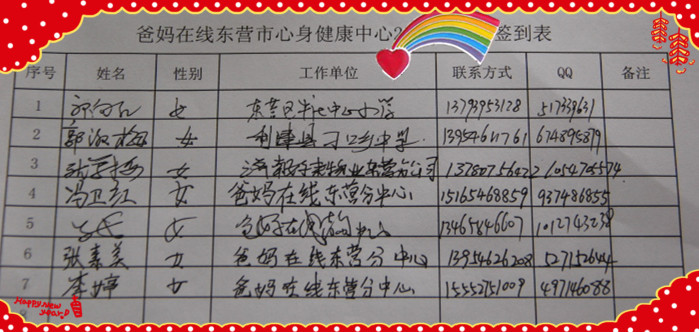 爸妈在线东营市心身健康中心2 签到表
序号 姓名 性别 工作单位 联系方式 QQ 备注
1 女 东营区 中心小学 13793953128 517339631
2 郭淑梅 女 利津县刁口乡中学 13954611761 674895879
3 女 东营分公司
4 冯卫红 女 爸妈在线东营分中心 15165468859 937486855
5 女 中心 13465846607 1012743238
6 张素美 女 爸妈在线东营分中心 13954626208 527152644
7 李婷 女 爸妈在线东营分中心 15552751009 497146088
Happy new year,:D